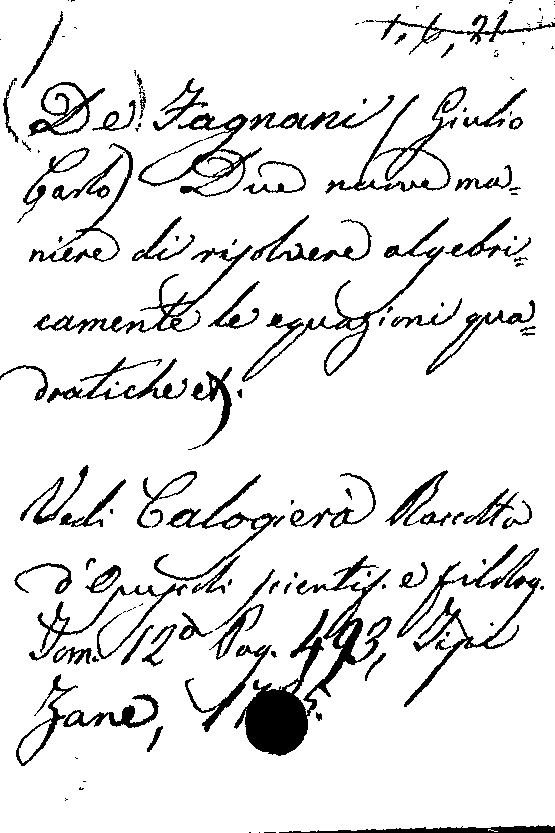 1, 6, 21
(De) Fagnani (Giulio
Carlo) Due nuove ma=
niere di risolvere algebri=
camente le equazioni qua=
dratiche
Vedi Calogierà Raccolta
d'Opuscoli scientif. e filolog.
Tom. 12º Pag. 493, Tipi
Zane,